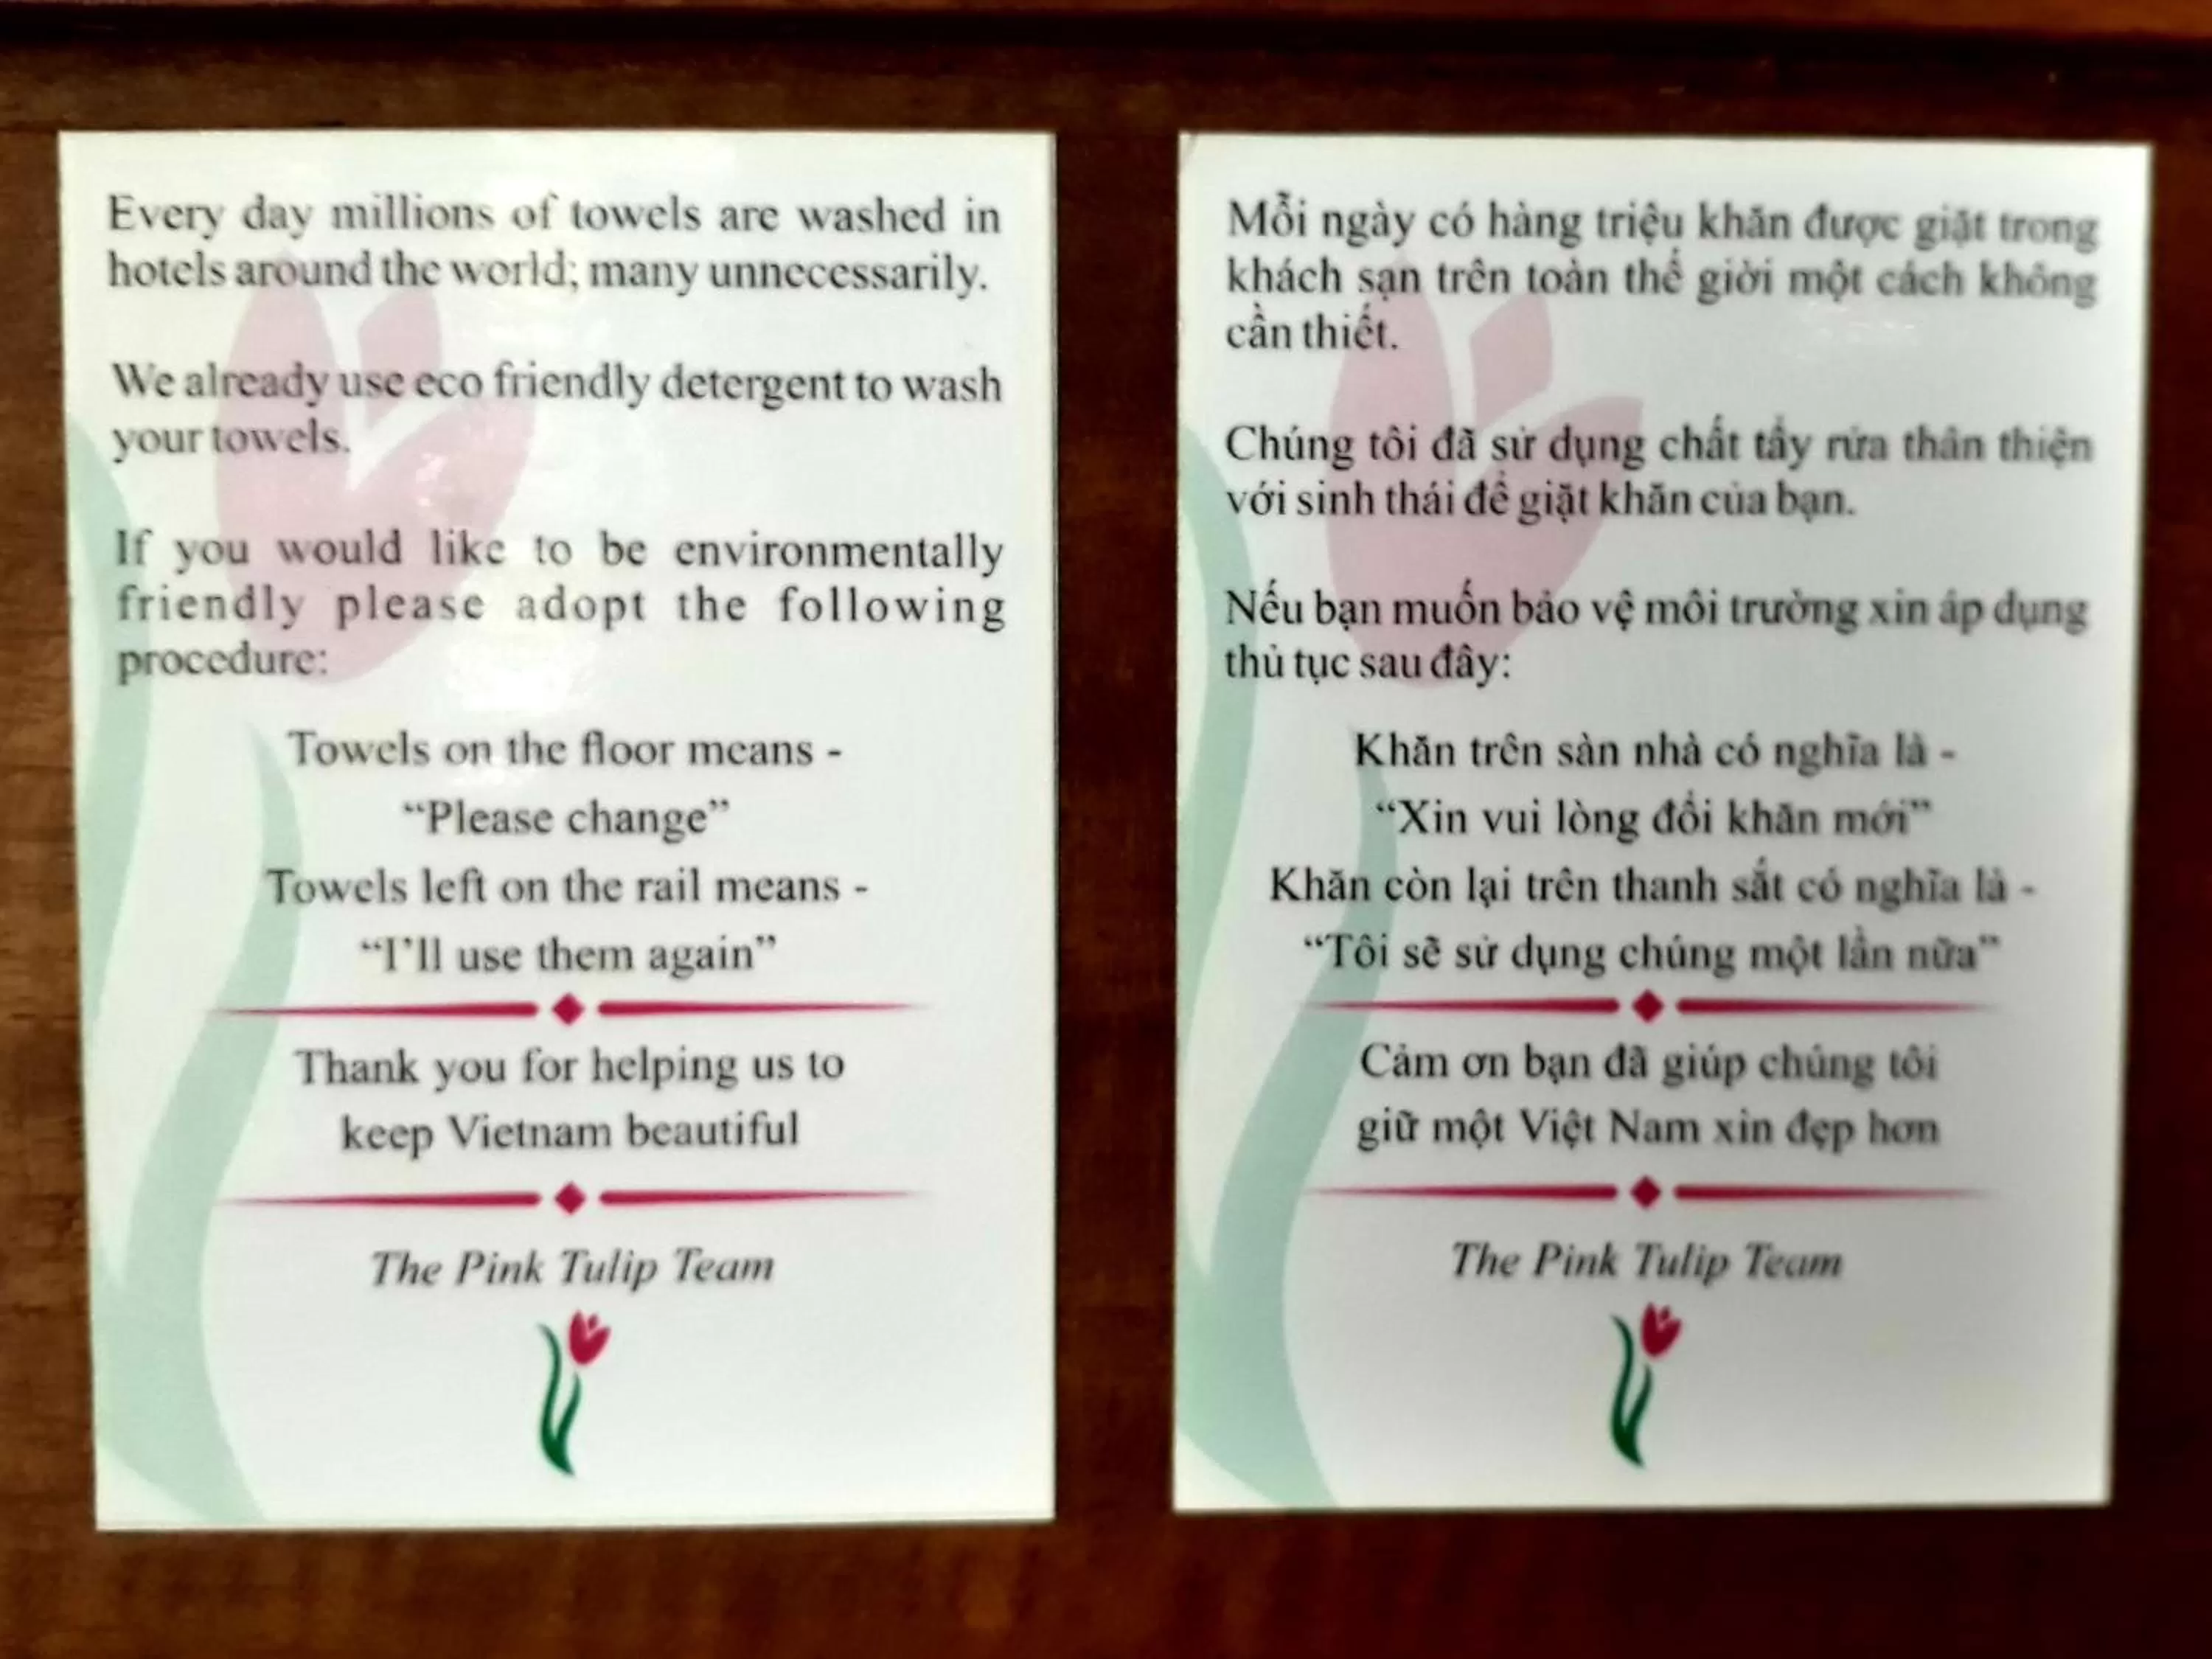 Every day millions of towels are washed in
hotels around the world; many unnecessarily.
We already use eco friendly detergent to wash
your towels.
If you would like to be environmentally
friendly please adopt the following
procedure:
Towels on the floor means -
“Please change”
Towels left on the rail means -
“I’ll use them again”
Thank you for helping us to
keep Vietnam beautiful
The Pink Tulip Team
Mỗi ngày có hàng triệu khăn được giặt trong
khách sạn trên toàn thế giời một cách không
cần thiết.
Chúng tôi đã sử dụng chất tẩy rửa thân thiện
với sinh thái để giặt khăn của bạn.
Nếu bạn muốn bảo vệ môi trường xin áp dụng
thủ tục sau đây:
Khăn trên sàn nhà có nghĩa là -
“Xin vui lòng đổi khăn mới”
Khăn còn lại trên thanh sắt có nghĩa là -
“Tôi sẽ sử dụng chúng một lần nữa”
Cảm ơn bạn đã giúp chúng tôi
giữ một Việt Nam xin đẹp hơn
The Pink Tulip Team